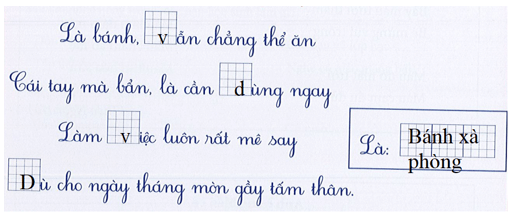 Là bánh, vẫn chẳng thể ăn
Cái tay mà bẩn, là cần dùng ngay
Làm việc luôn rất mê say
Dù cho ngày tháng mòn gầy tấm thân.
Là: Bánh xà
phòng